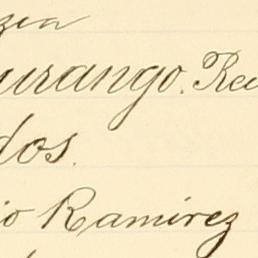 zen
urango. Rec
dos.
io Ramirez